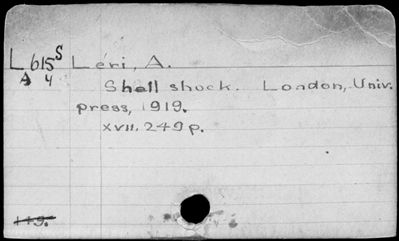 L615S Léri, A.
A 4 Shell shock. London, Univ.
press, 1919.
xvii, 249p.
149.